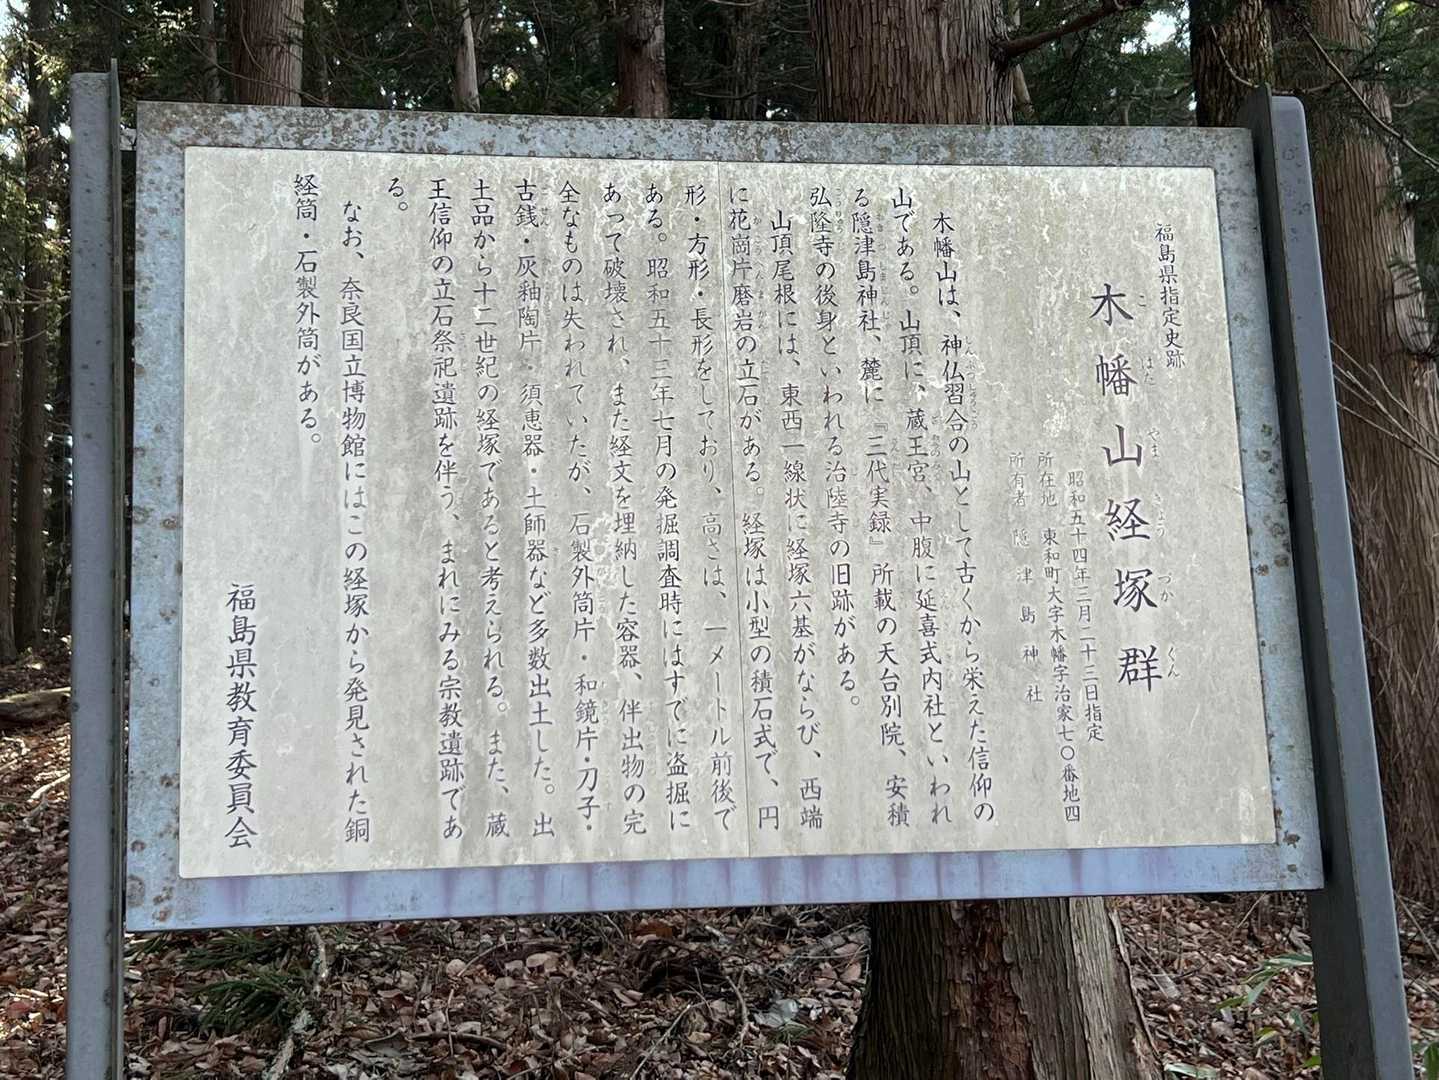 福島県指定史跡
木幡山経塚群
こはたやまきょうづかぐん
昭和五十四年三月二十三日指定
所在地 東和町大字木幡字治家七〇番地四
所有者 隠津島神社
木幡山は、神仏習合の山として古くから栄えた信仰の
山である。山頂に、蔵王宮、中腹に延喜式内社といわれ
る隠津島神社、麓に『三代実録』所載の天台別院、安積
弘隆寺の後身といわれる治陸寺の旧跡がある。
山頂尾根には、東西一線状に経塚六基がならび、西端
に花崗片磨岩の立石がある。経塚は小型の積石式で、円
形・方形・長形をしており、高さは、一メートル前後で
ある。昭和五十三年七月の発掘調査時にはすでに盗掘に
あって破壊され、また経文を埋納した容器、伴出物の完
全なものは失われていたが、石製外筒片・和鏡片・刀子・
古銭・灰釉陶片・須恵器・土師器など多数出土した。出
土品から十二世紀の経塚であると考えられる。また、蔵
王信仰の立石祭祀遺跡を伴う、まれにみる宗教遺跡であ
る。
なお、奈良国立博物館にはこの経塚から発見された銅
経筒・石製外筒がある。
福島県教育委員会